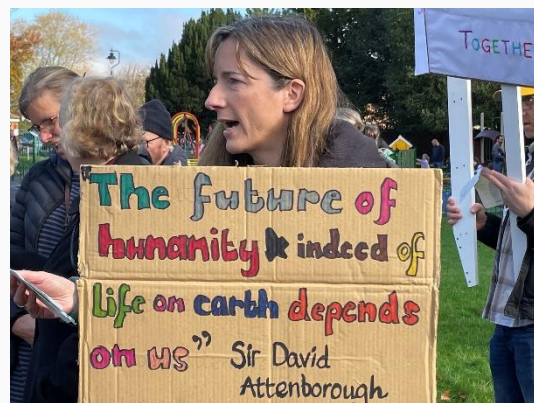 "The future of
humanity & indeed of
life on earth depends
on us" Sir David
Attenborough
TOGETHE